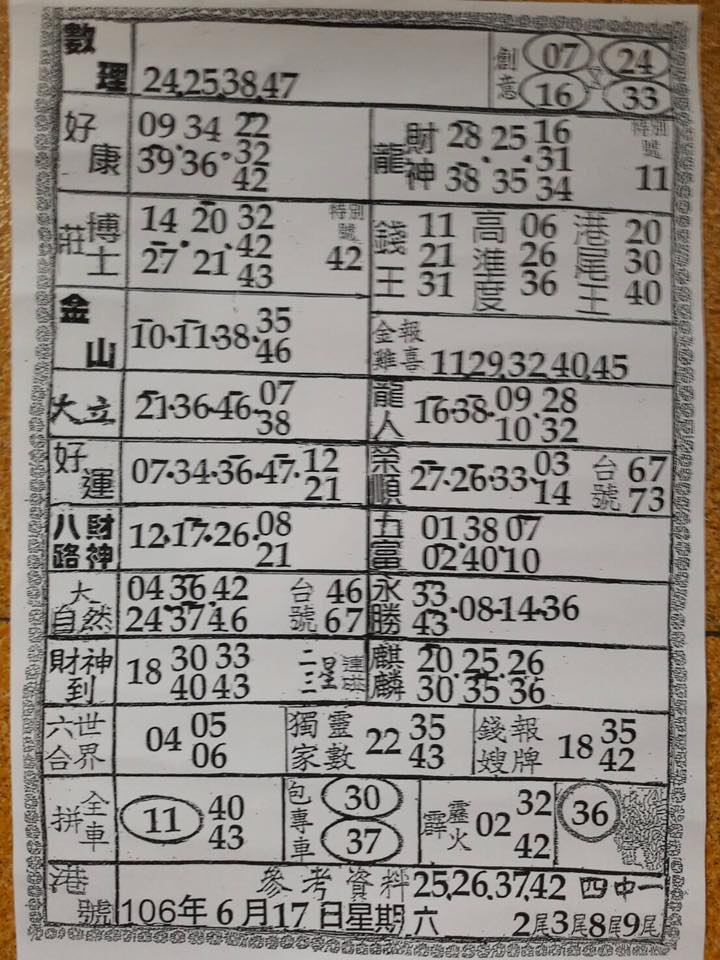 數理 24,25,38,47
創意 07 24
16 33
好康 09 34 22
39 36 32
42
財神龍 28 25 16
31
38 35 34
特別號 11
博士莊 14 20 32
42
27 21 43
特別號 42
錢王 11 21 31
高進度 06 26 36
港尾王 20 30 40
金山 10.11.38.35
46
金雞報喜 11,29,32,40,45
大立 21.36.46.07
38
龍人 16.38.09.28
10 32
好運 07.34.36.47.12
21
榮順 27.26.33.03
14
台號 67
73
八路財神 12.17.26.08
21
五富 01.38 07
02 40 10
大自然 04 36 42
24 37 46
台號 46
67
永勝 33
43 .08.14.36
財神到 18 30 33
40 43
二三星連碰
麒麟 20 25 26
30 35 36
六合世界 04 05
06
獨家靈數 22 35
43
錢嫂報牌 18 35
42
全車拼 11 40
43
包專車 30
37
霹靂火 02 32
42
36
港號 參考資料 25,26,37,42 四中一
106年6月17日星期六 2尾3尾8尾9尾